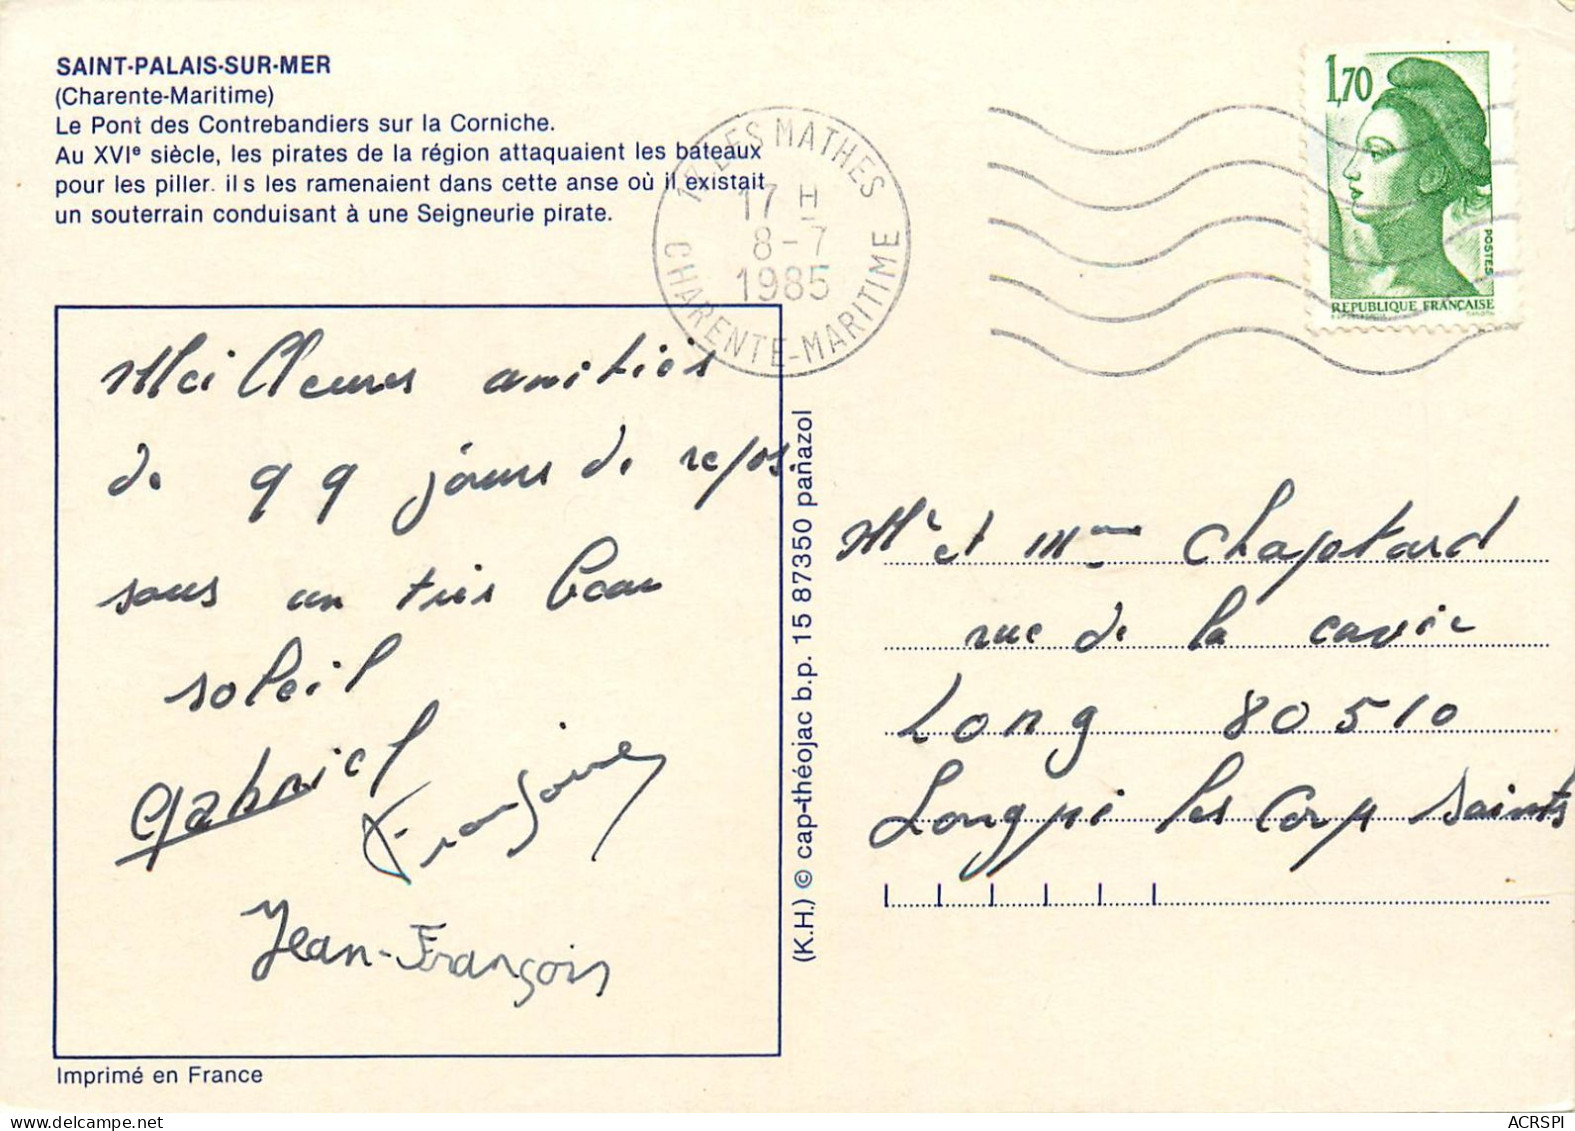 SAINT-PALAIS-SUR-MER
(Charente-Maritime)
Le Pont des Contrebandiers sur la Corniche.
Au XVIe siècle, les pirates de la région attaquaient les bateaux
pour les piller. ils les ramenaient dans cette anse où il existait
un souterrain conduisant à une Seigneurie pirate.
17 LES MATHES
17 H
8-7
1985
CHARENTE-MARITIME
1,70
POSTES
REPUBLIQUE FRANÇAISE
Meilleures amitiés
de qq jours de repos
sous un très beau
soleil
Gabriel
Françoise
Jean-François
(K.H.) © cap-théojac b.p. 15 87350 panazol
Mr et Mme Chaptard
rue de la cavée
Long 80510
Longpré les Corps Saints
Imprimé en France
ACRSPI